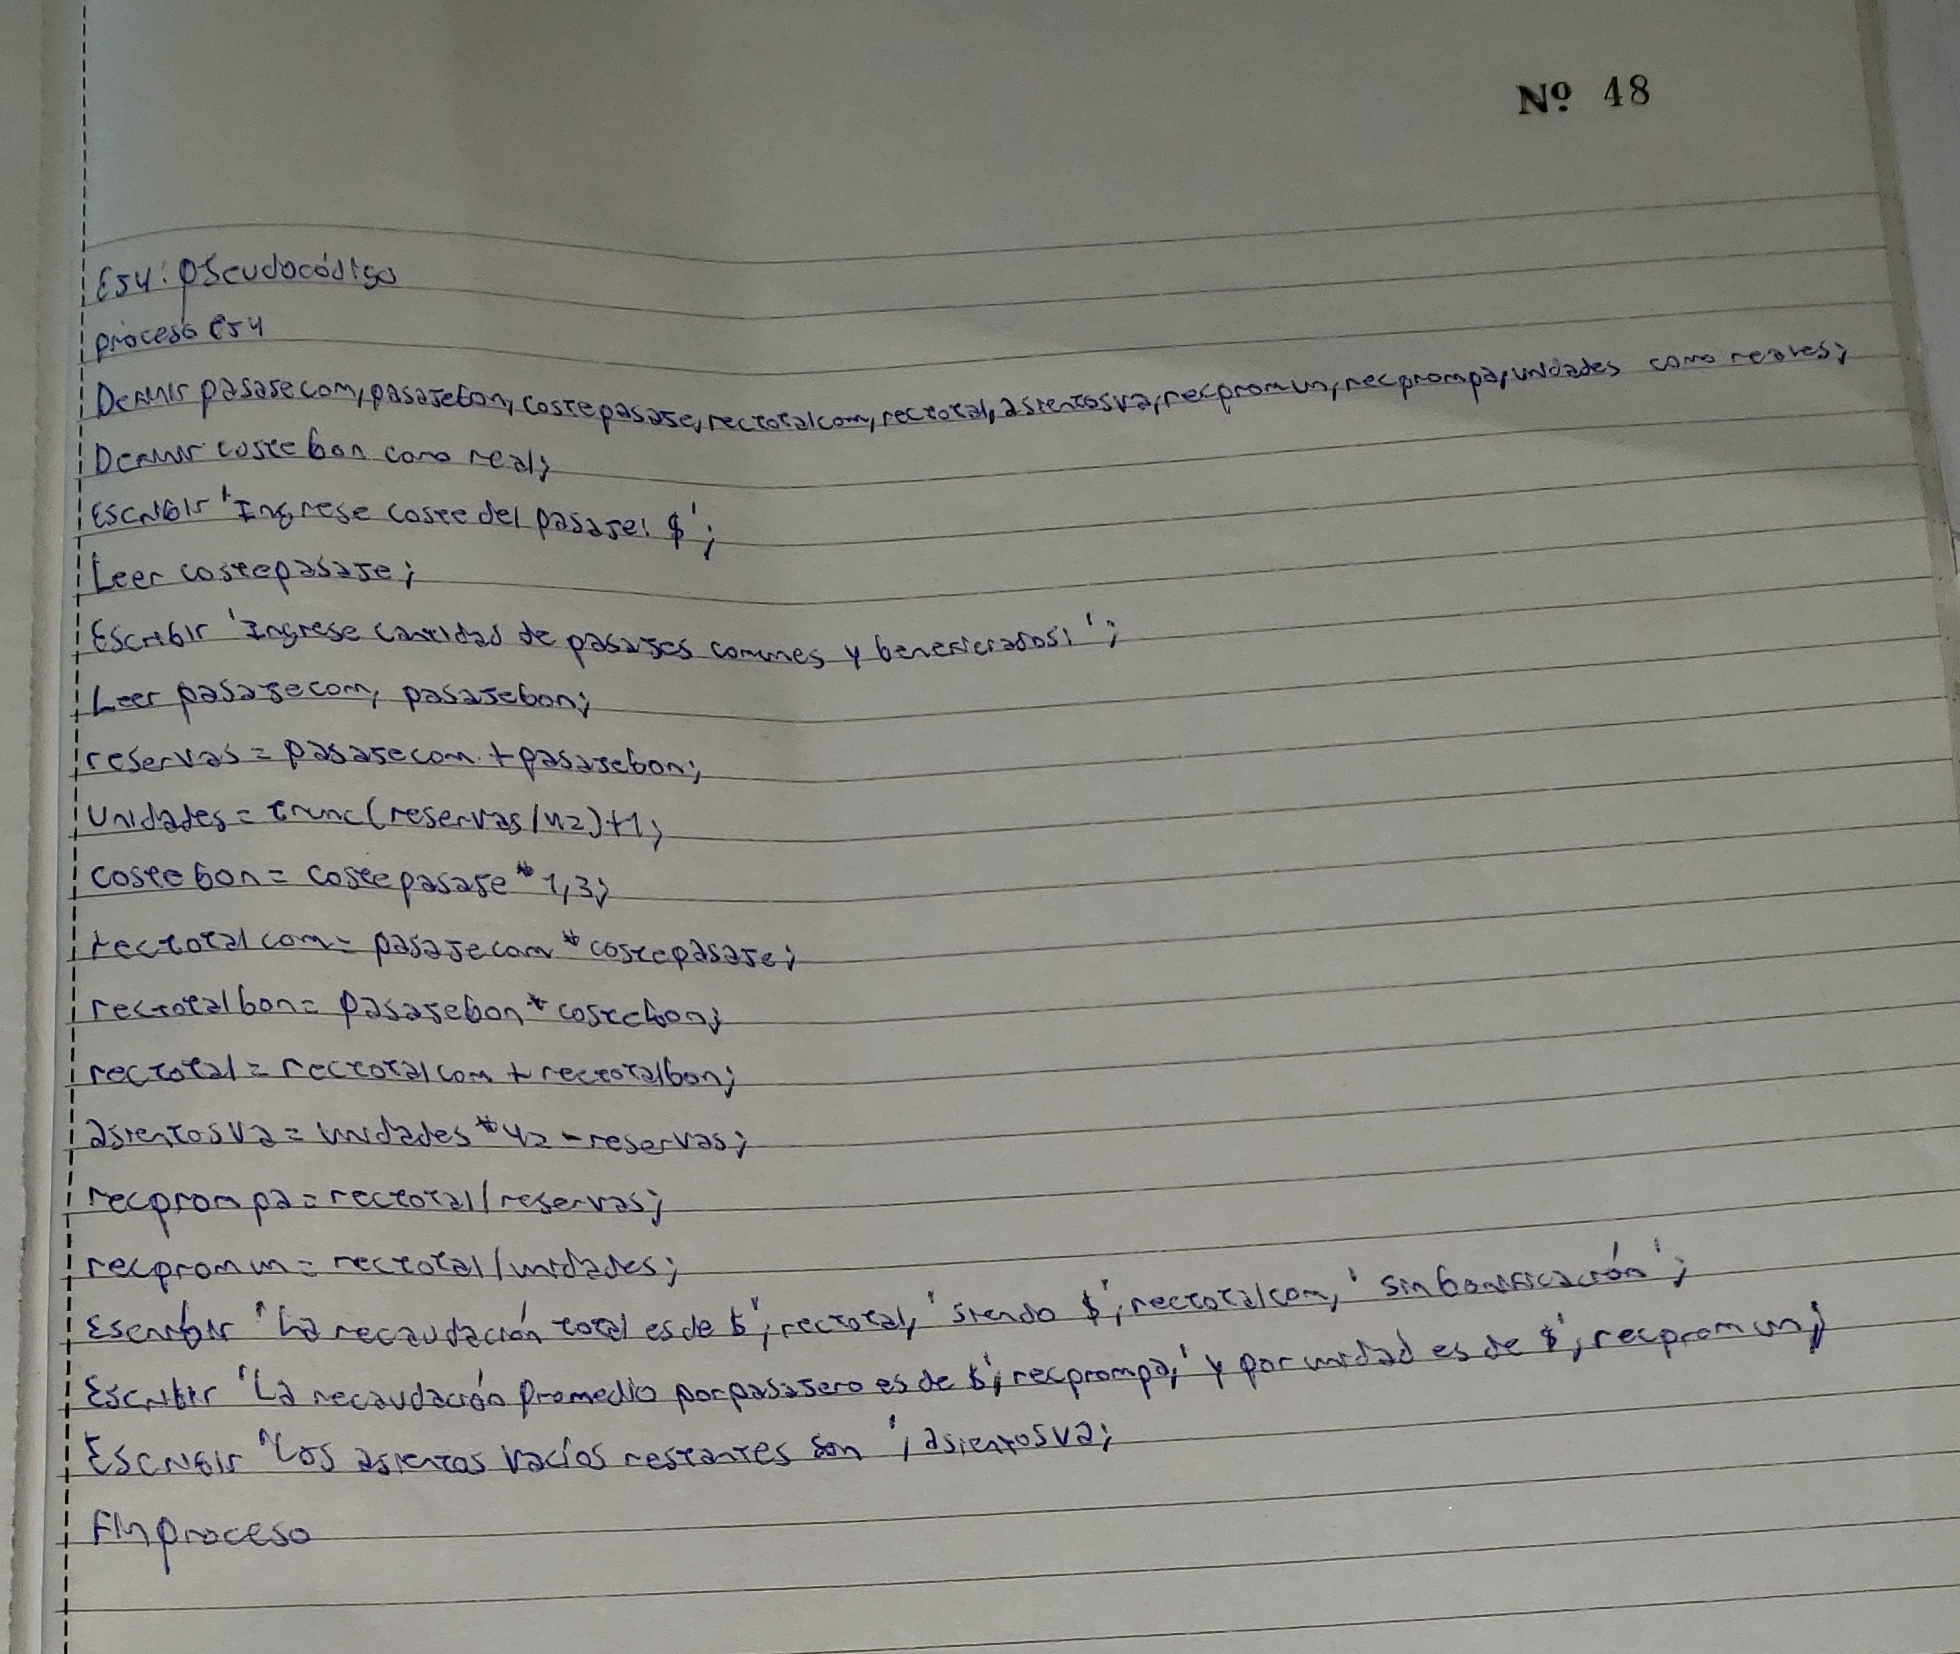 Nº 48
Ej4: pseudocódigo
proceso ej4
Definir pasajecom, pasajebon, costepasaje, rectotalcom, rectotal, asientosva, recpromun, recprompa, unidades como reales;
Definir costebon como real;
Escribir 'Ingrese coste del pasaje: $';
Leer costepasaje;
Escribir 'Ingrese cantidad de pasajes comunes y beneficiados:';
Leer pasajecom, pasajebon;
reservas = pasajecom + pasajebon;
unidades = trunc(reservas/42)+1;
costebon = costepasaje * 1,3;
rectotalcom = pasajecom * costepasaje;
rectotalbon = pasajebon * costebon;
rectotal = rectotalcom + rectotalbon;
asientosva = unidades * 42 - reservas;
recprompa = rectotal/reservas;
recpromun = rectotal/unidades;
Escribir 'La recaudación total es de $', rectotal, ' siendo $', rectotalcom, ' sin bonificación';
Escribir 'La recaudación promedio por pasajero es de $', recprompa, ' y por unidad es de $', recpromun;
Escribir 'Los asientos vacíos restantes son ', asientosva;
Finproceso